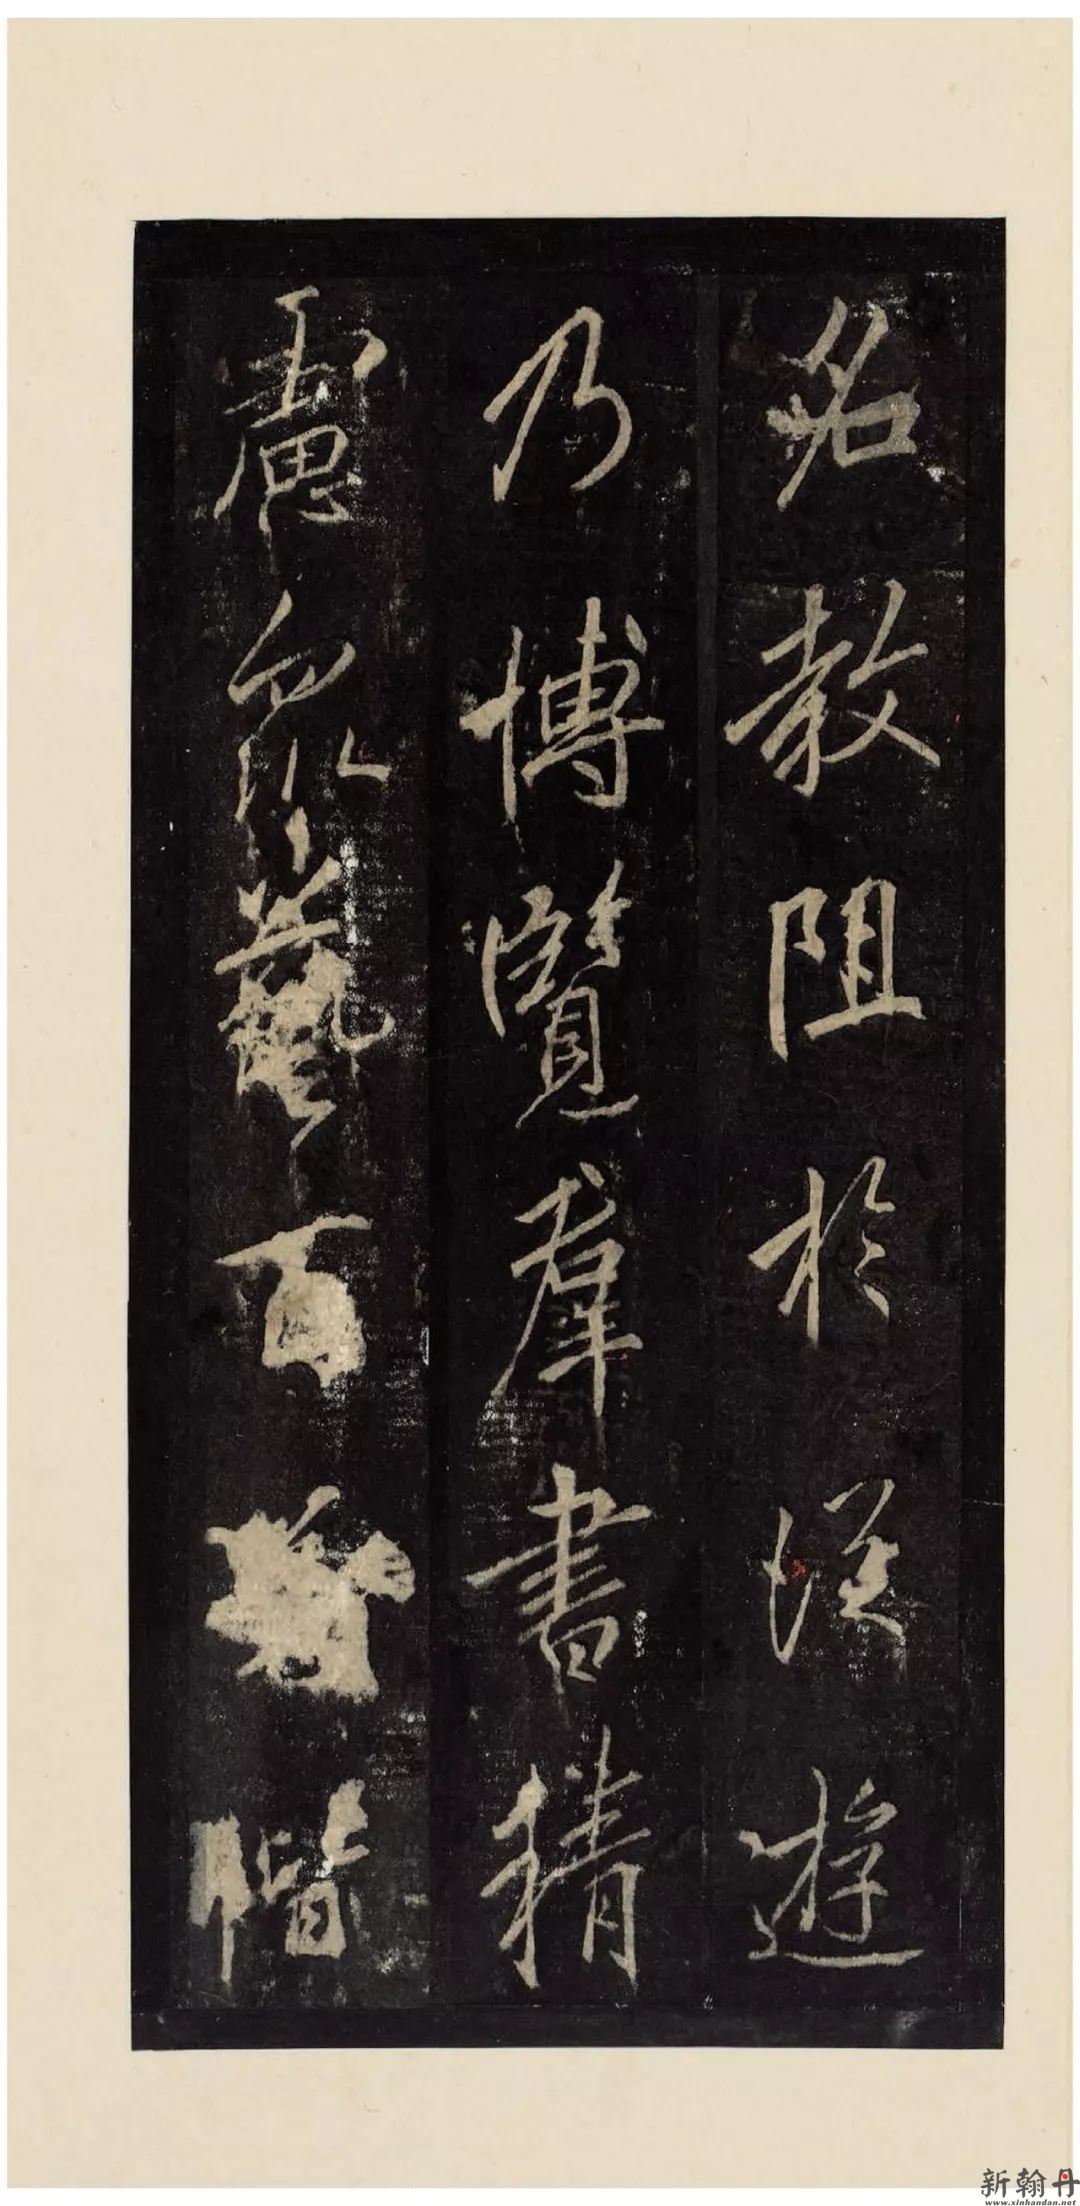 名教阻於從遊
乃博覽群書精
慮眾藝百
階
新翰丹
www.xinhandan.net